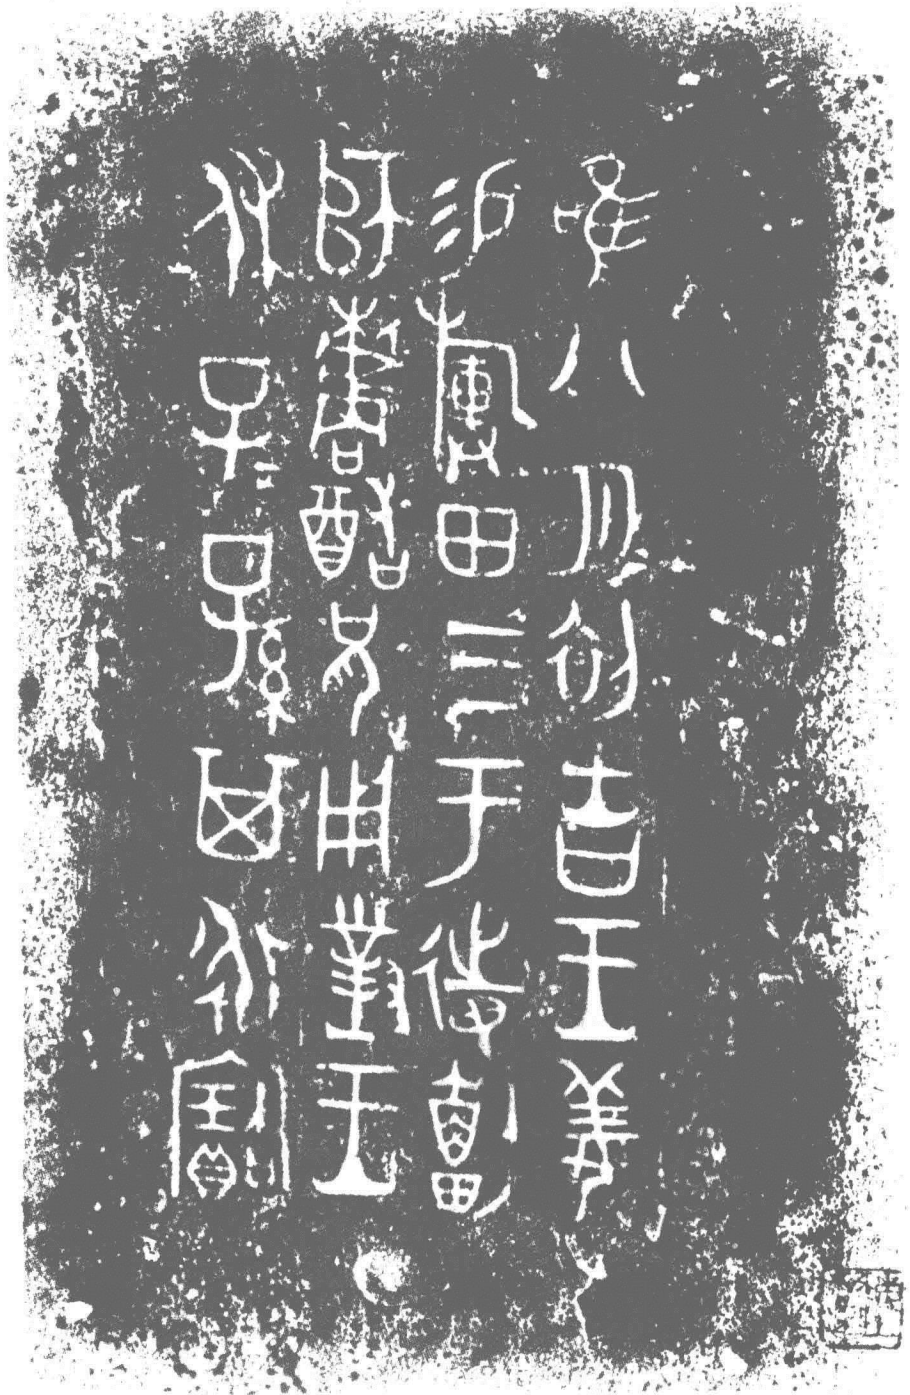 唯八月初吉王姜
易旟田三于待劃
師櫨酷兄用對王
休子＝孫其永寶